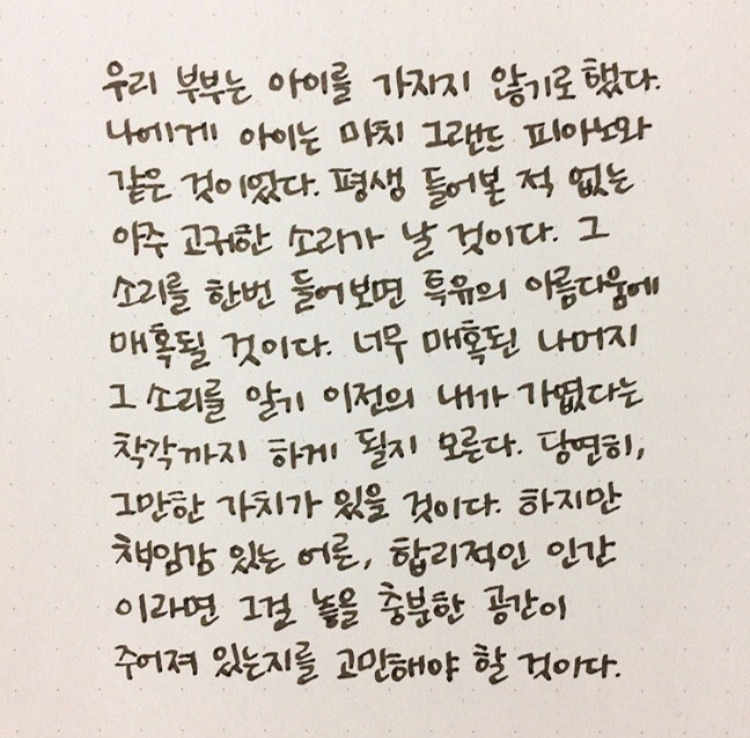 우리 부부는 아이를 가지지 않기로 했다.
나에게 아이는 마치 그랜드 피아노와
같은 것이었다. 평생 들어본 적 없는
아주 고귀한 소리가 날 것이다. 그
소리를 한번 들어보면 특유의 아름다움에
매혹될 것이다. 너무 매혹된 나머지
그 소리를 알기 이전의 내가 가엾다는
착각까지 하게 될지 모른다. 당연히,
그만한 가치가 있을 것이다. 하지만
책임감 있는 어른, 합리적인 인간
이라면 그걸 놓을 충분한 공간이
주어져 있는지를 고민해야 할 것이다.